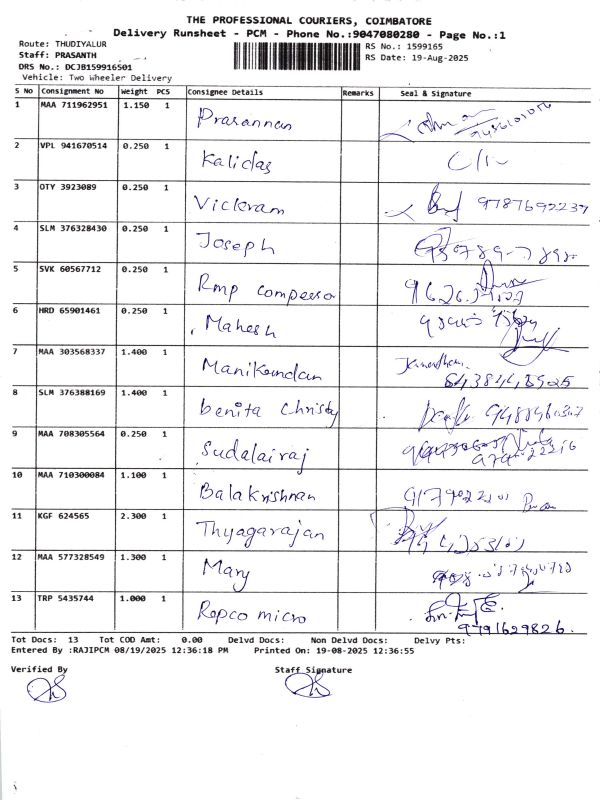 THE PROFESSIONAL COURIERS, COIMBATORE
Delivery Runsheet - PCM - Phone No.:9047080280 - Page No.:1
Route: THUDIYALUR
RS No.: 1599165
Staff: PRASANTH
RS Date: 19-Aug-2025
DRS No.: DCJB159916501
Vehicle: Two Wheeler Delivery
S No Consignment No Weight PCS Consignee Details Remarks Seal & Signature
1 MAA 711962951 1.150 1 Prasannan
2 VPL 941670514 0.250 1 Kalidas
3 OTY 3923089 0.250 1 Vickram 9787692237
4 SLM 376328430 0.250 1 Joseph
5 SVK 60567712 0.250 1 Rmp compessor
6 HRD 65901461 0.250 1 Mahesh
7 MAA 303568337 1.400 1 Manikandan
8 SLM 376388169 1.400 1 benita Christy
9 MAA 708305564 0.250 1 Sudalairaj
10 MAA 710300084 1.100 1 Balakrishnan
11 KGF 624565 2.300 1 Thyagarajan
12 MAA 577328549 1.300 1 Mary
13 TRP 5435744 1.000 1 Repco micro 9791629826
Tot Docs: 13 Tot COD Amt: 0.00 Delvd Docs: Non Delvd Docs: Delvy Pts:
Entered By :RAJIPCM 08/19/2025 12:36:18 PM Printed On: 19-08-2025 12:36:55
Verified By Staff Signature